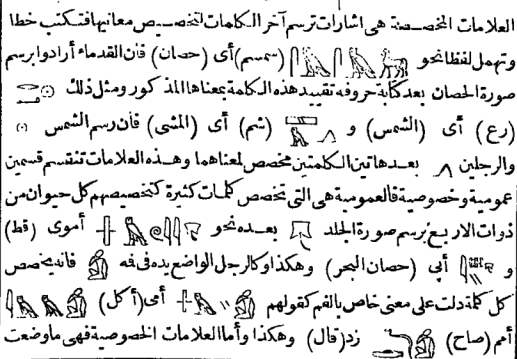 العلامات المخصصة هى اشارات ترسم آخر الكلمات لتخصيص معانيها فتكتب خطا
وتهمل لفظا نحو (سمسم) أى (حصان) فان القدماء أرادوا برسم
صورة الحصان بعد كتابة حروفه تقييد هذه الكلمة بمعناها المذكور ومثل ذلك
(رع) أى (الشمس) و (شم) أى (المشى) فان رسم الشمس
والرجلين بعد هاتين الكلمتين مخصص لمعناهما وهذه العلامات تنقسم قسمين
عمومية وخصوصية فالعمومية هى التى تخصص كلمات كثيرة كتخصيصهم كل حيوان من
ذوات الاربع برسم صورة الجلد بعده نحو أموى (قط)
و أبى (حصان البحر) وهكذا وكالرجل الواضع يده فى فه فانه يخصص
كل كلمة دلت على معنى خاص بالفم كقولهم أمى (أكل)
أمم (صاح) زد (قال) وهكذا وأما العلامات الخصوصية فهى ماوضعت